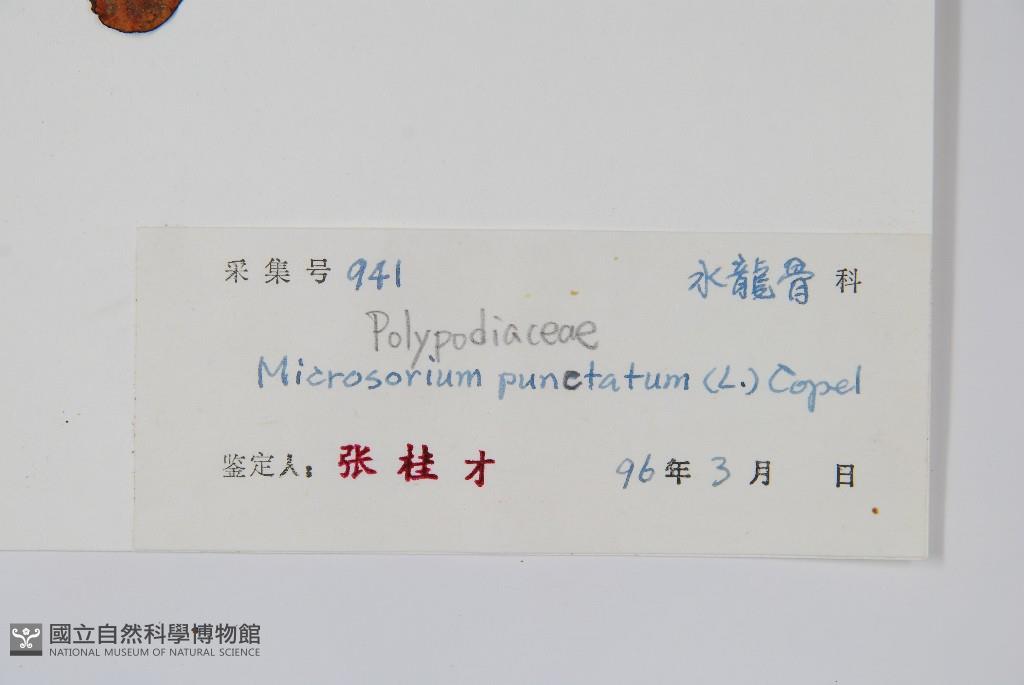 采集号 941 水龍骨 科
Polypodiaceae
Microsorium punctatum (L.) Copel
鉴定人: 张桂才 96年3月 日
國立自然科學博物館
NATIONAL MUSEUM OF NATURAL SCIENCE